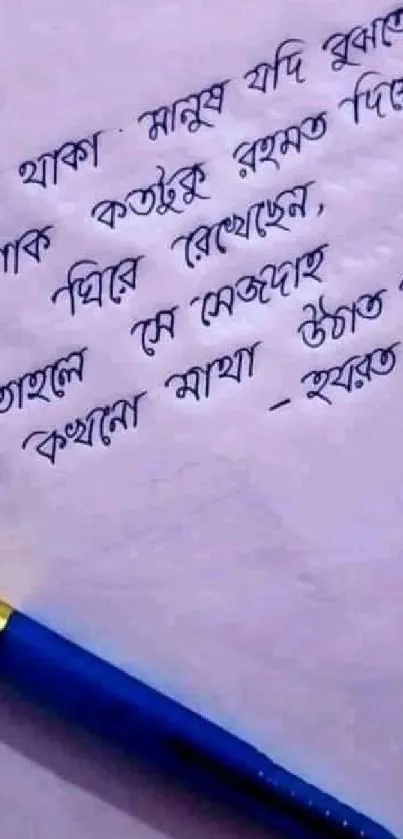 থাকা মানুষ যদি বুঝতে
কতটুকু রহমত দিয়ে
ঘিরে রেখেছেন,
তাহলে সে সেজদাহ
কখনো মাথা উঠাত
- হযরত